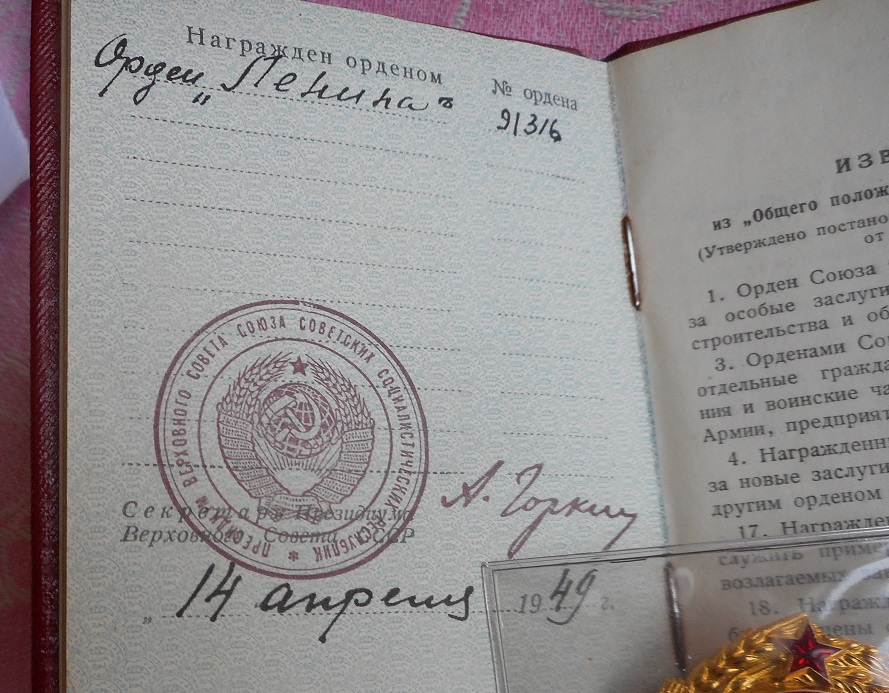 Награжден орденом
№ ордена
Орден „Ленина“
91316
ПРЕЗИДИУМ ВЕРХОВНОГО СОВЕТА СОЮЗА СОВЕТСКИХ СОЦИАЛИСТИЧЕСКИХ РЕСПУБЛИК *
Секретарь Президиума
Верховного Совета СССР
А. Горкин
„14 апреля 1949 г.
ИЗВ
из „Общего полож
(Утверждено постано
от
1. Орден Союза
за особые заслуги
строительства и об
3. Орденами Сою
отдельные гражда
ния и воинские ча
Армии, предприят
4. Награжденн
за новые заслуги
другим орденом
17. Награжден
служить приме
возлагаемых
18. Награжд